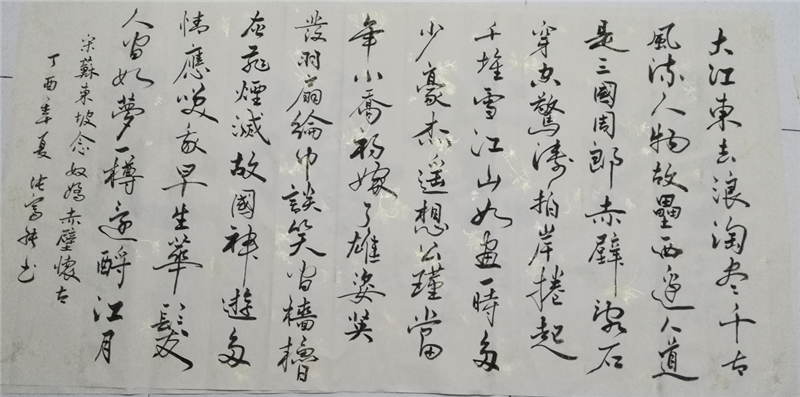 大江東去浪淘尽千古
風流人物故壘西邊人道
是三國周郎赤壁乱石
穿空驚濤拍岸捲起
千堆雪江山如畫一時多
少豪杰遥想公瑾當
年小喬初嫁了雄姿英
發羽扇綸巾談笑间檣櫓
灰飛煙滅故國神遊多
情應笑我早生華髮
人间如夢一樽還酹江月
宋蘇東坡念奴嬌赤壁懷古
丁酉年夏张书